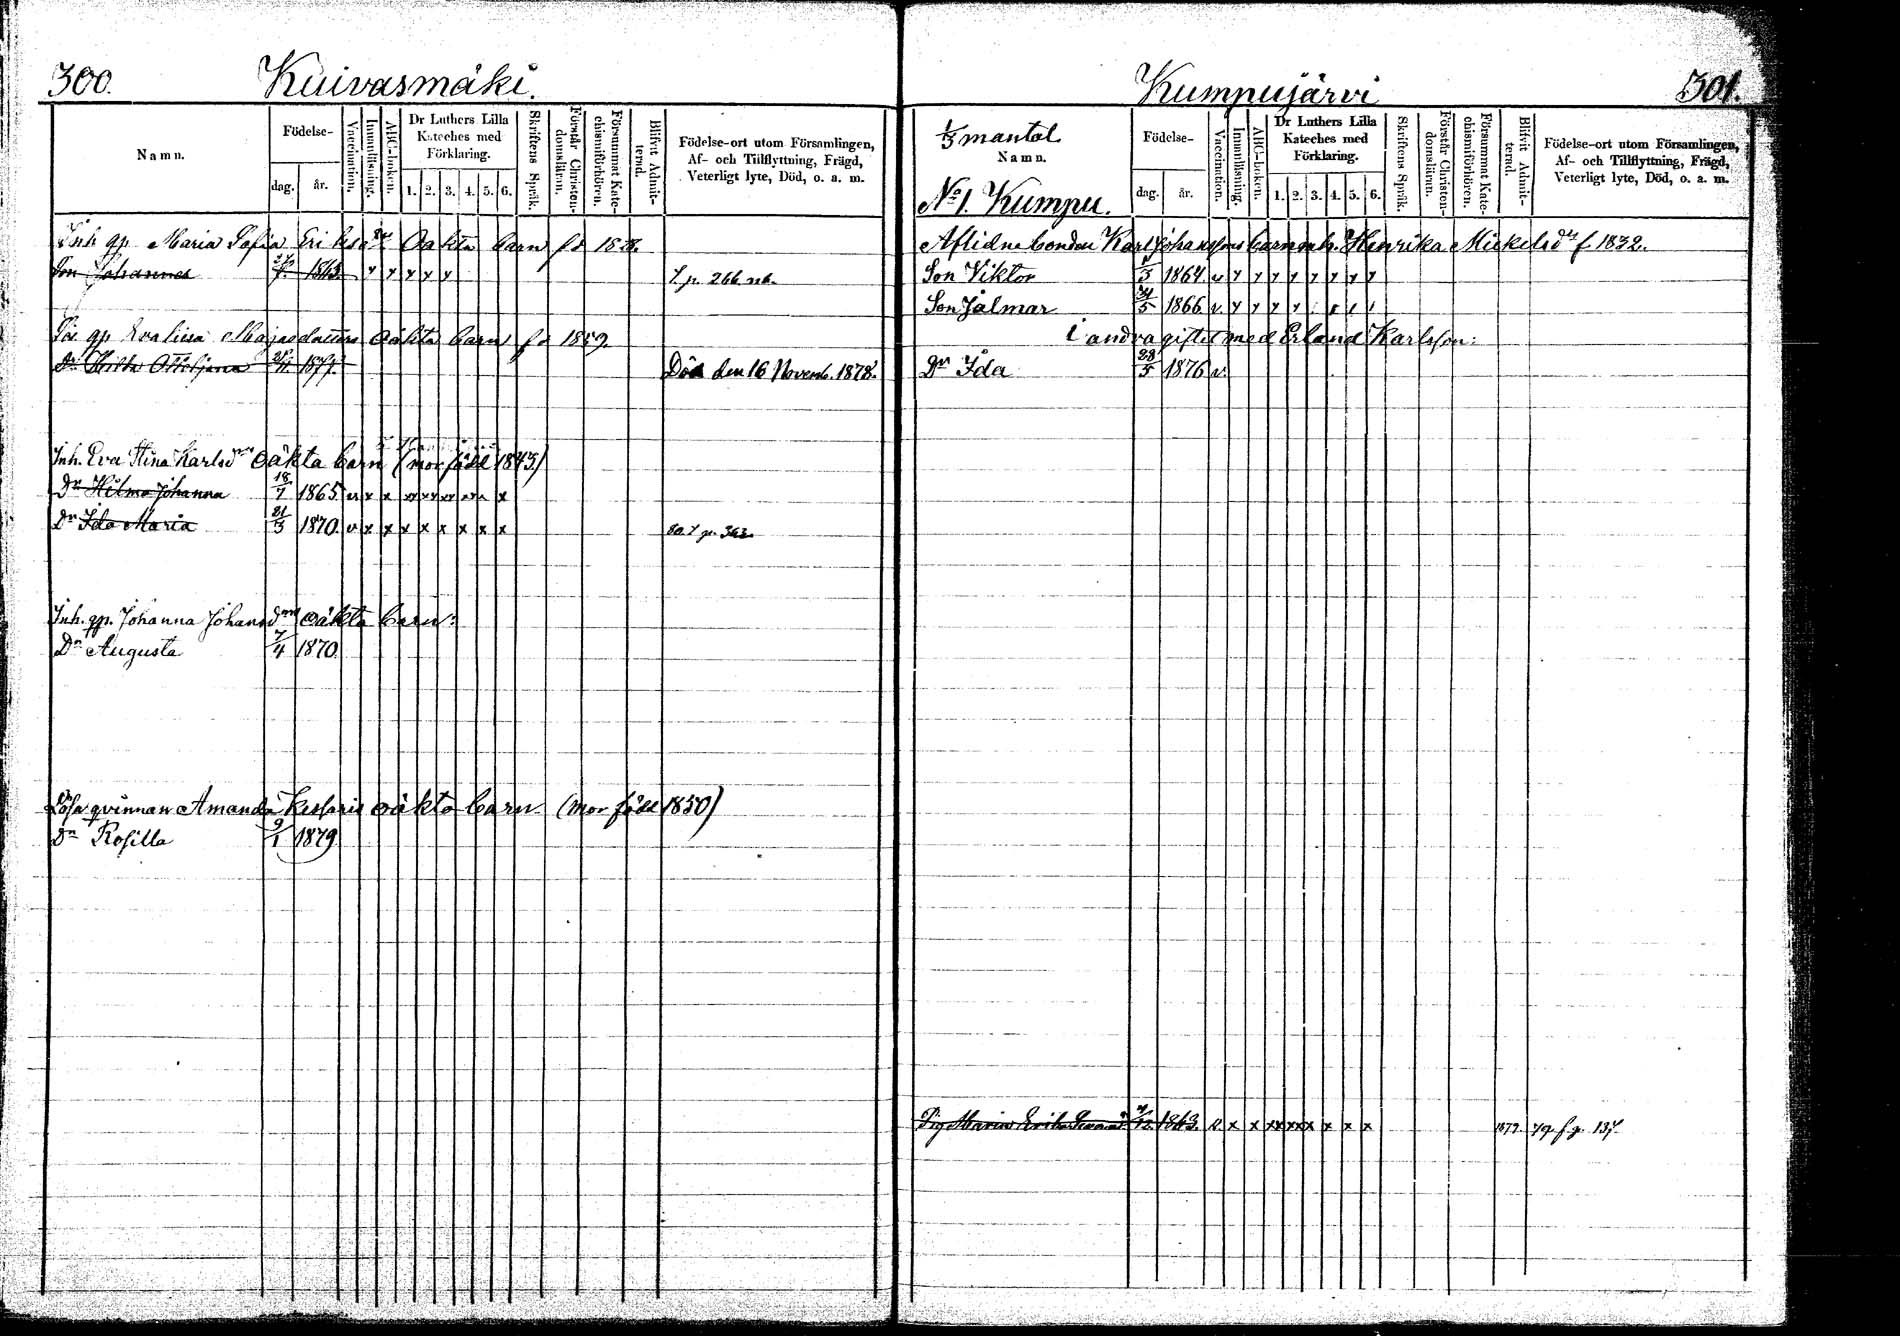 300. Kuivasmäki.
Namn. Födelse- dag. år. Vaccination. Innanläsning. ABC-boken. Dr Luthers Lilla Kateches med Förklaring. 1. 2. 3. 4. 5. 6. Skriftens Språk. Förstår Christendomsläran. Försummat Katechismiförhören. Blifvit Admitterad. Födelse-ort utom Församlingen, Af- och Tillflyttning, Frägd, Veterligt lyte, Död, o. a. m.
Inh. qp. Maria Sofia Eriksdrs Oäkta barn fd 1828.
Son Johannes 1863. f. p. 266. nb.
qp Evaliisa Majasdotters oäkta barn fd 1859.
Dr Hilda Ottiljana 1877. Död den 16 Novemb. 1878.
Inh. Eva Stina Karlsdrs oäkta barn (mor född 1843)
Dr Hilma Johanna 18/7 1865 v x x xx xx xx x x
Dr Ida Maria 21/3 1870. v x x x x x x x x 80. f p. 363.
Inh. qp. Johanna Johansdrs oäkta barn:
Dr Augusta 7/4 1870
Lösa qvinnan Amanda Kessaris oäkta barn (mor född 1850)
Dr Rosilla 9/1 1879
Kumpujärvi 301.
1/3 mantal
Namn. Födelse- dag. år. Vaccination. Innanläsning. ABC-boken. Dr Luthers Lilla Kateches med Förklaring. 1. 2. 3. 4. 5. 6. Skriftens Språk. Förstår Christendomsläran. Försummat Katechismiförhören. Blifvit Admitterad. Födelse-ort utom Församlingen, Af- och Tillflyttning, Frägd, Veterligt lyte, Död, o. a. m.
No 1. Kumpu.
Aflidne bonden Karl Johanssons barn m. h. Henrika Mickelsdr f. 1832.
Son Viktor 1864.
Son Jalmar 1866.
i andra giftet med Erland Karlsson:
Dr Ida 28/5 1876 v.
Pig. Maria Eriks 1863. x x xx xx x x x x 1879. 79. f p. 137.